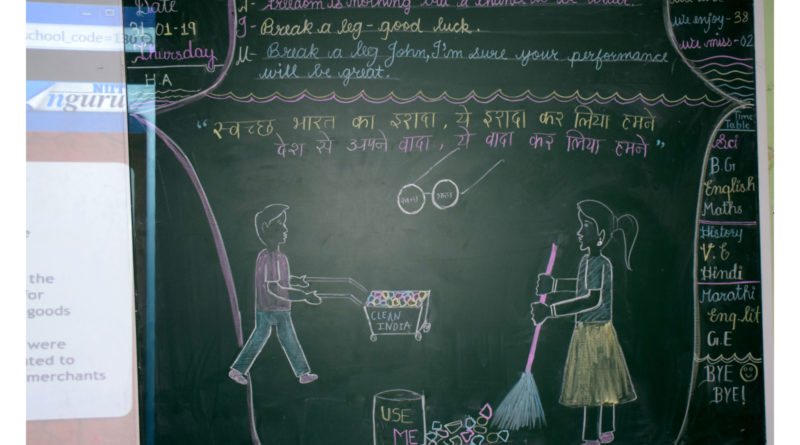 Date
31-01-19
Thursday
H.A
school_code=130
NIIT
nguru
the
for
goods
were
ted to
merchants
A- Freedom is nothing but a chance to be
J- Break a leg - good luck.
M- Break a leg John, I'm sure your performance
will be great.
we enjoy - 38
we miss - 02
"स्वच्छ भारत का इरादा, ये इरादा कर लिया हमने
देश से अपने वादा, ये वादा कर लिया हमने"
स्वच्छ भारत
CLEAN
INDIA
USE
ME
Time
Table
Sci
B.G
English
Maths
History
V.E
Hindi
Marathi
Eng lit
G.E
BYE
BYE!